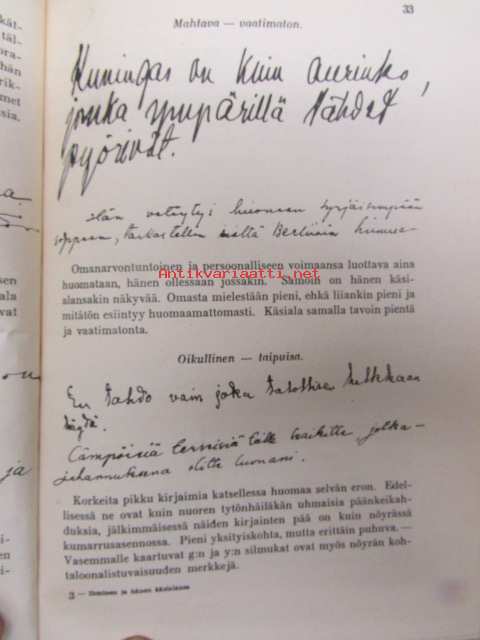 33
Mahtava — vaatimaton.
Kuningas on kuin aurinko,
jonka ympärillä tähdet
pyörivät.
Hän vetäytyi huoneen syrjäisimpään
soppeen, tarkastellen sieltä Berliinin
Omanarvontuntoinen ja persoonalliseen voimaansa luottava aina
huomataan, hänen ollessaan jossakin. Samoin on hänen käsi-
alansakin näkyvää. Omasta mielestään pieni, ehkä liiankin pieni ja
mitätön esiintyy huomaamattomasti. Käsiala samalla tavoin pientä
ja vaatimatonta.
Antikvariaatti.net
Oikullinen — taipuisa.
En tahdo vain joka
täydä.
Lämpöisiä terveisiä teille kaikille, jotka
juhannuksena olitte luonani.
Korkeita pikku kirjaimia katsellessa huomaa selvän eron. Edel-
lisessä ne ovat kuin nuoren tytönhäiläkän uhmaisia päänkeikah-
duksia, jälkimmäisessä näiden kirjainten pää on kuin nöyrässä
kumarrusasennossa. Pieni yksityiskohta, mutta erittäin puhuva. —
Vasemmalle kaartuvat g:n ja y:n silmukat ovat myös nöyrän koh-
taloonalistuvaisuuden merkkejä.
3 — Ihminen ja hänen käsialansa